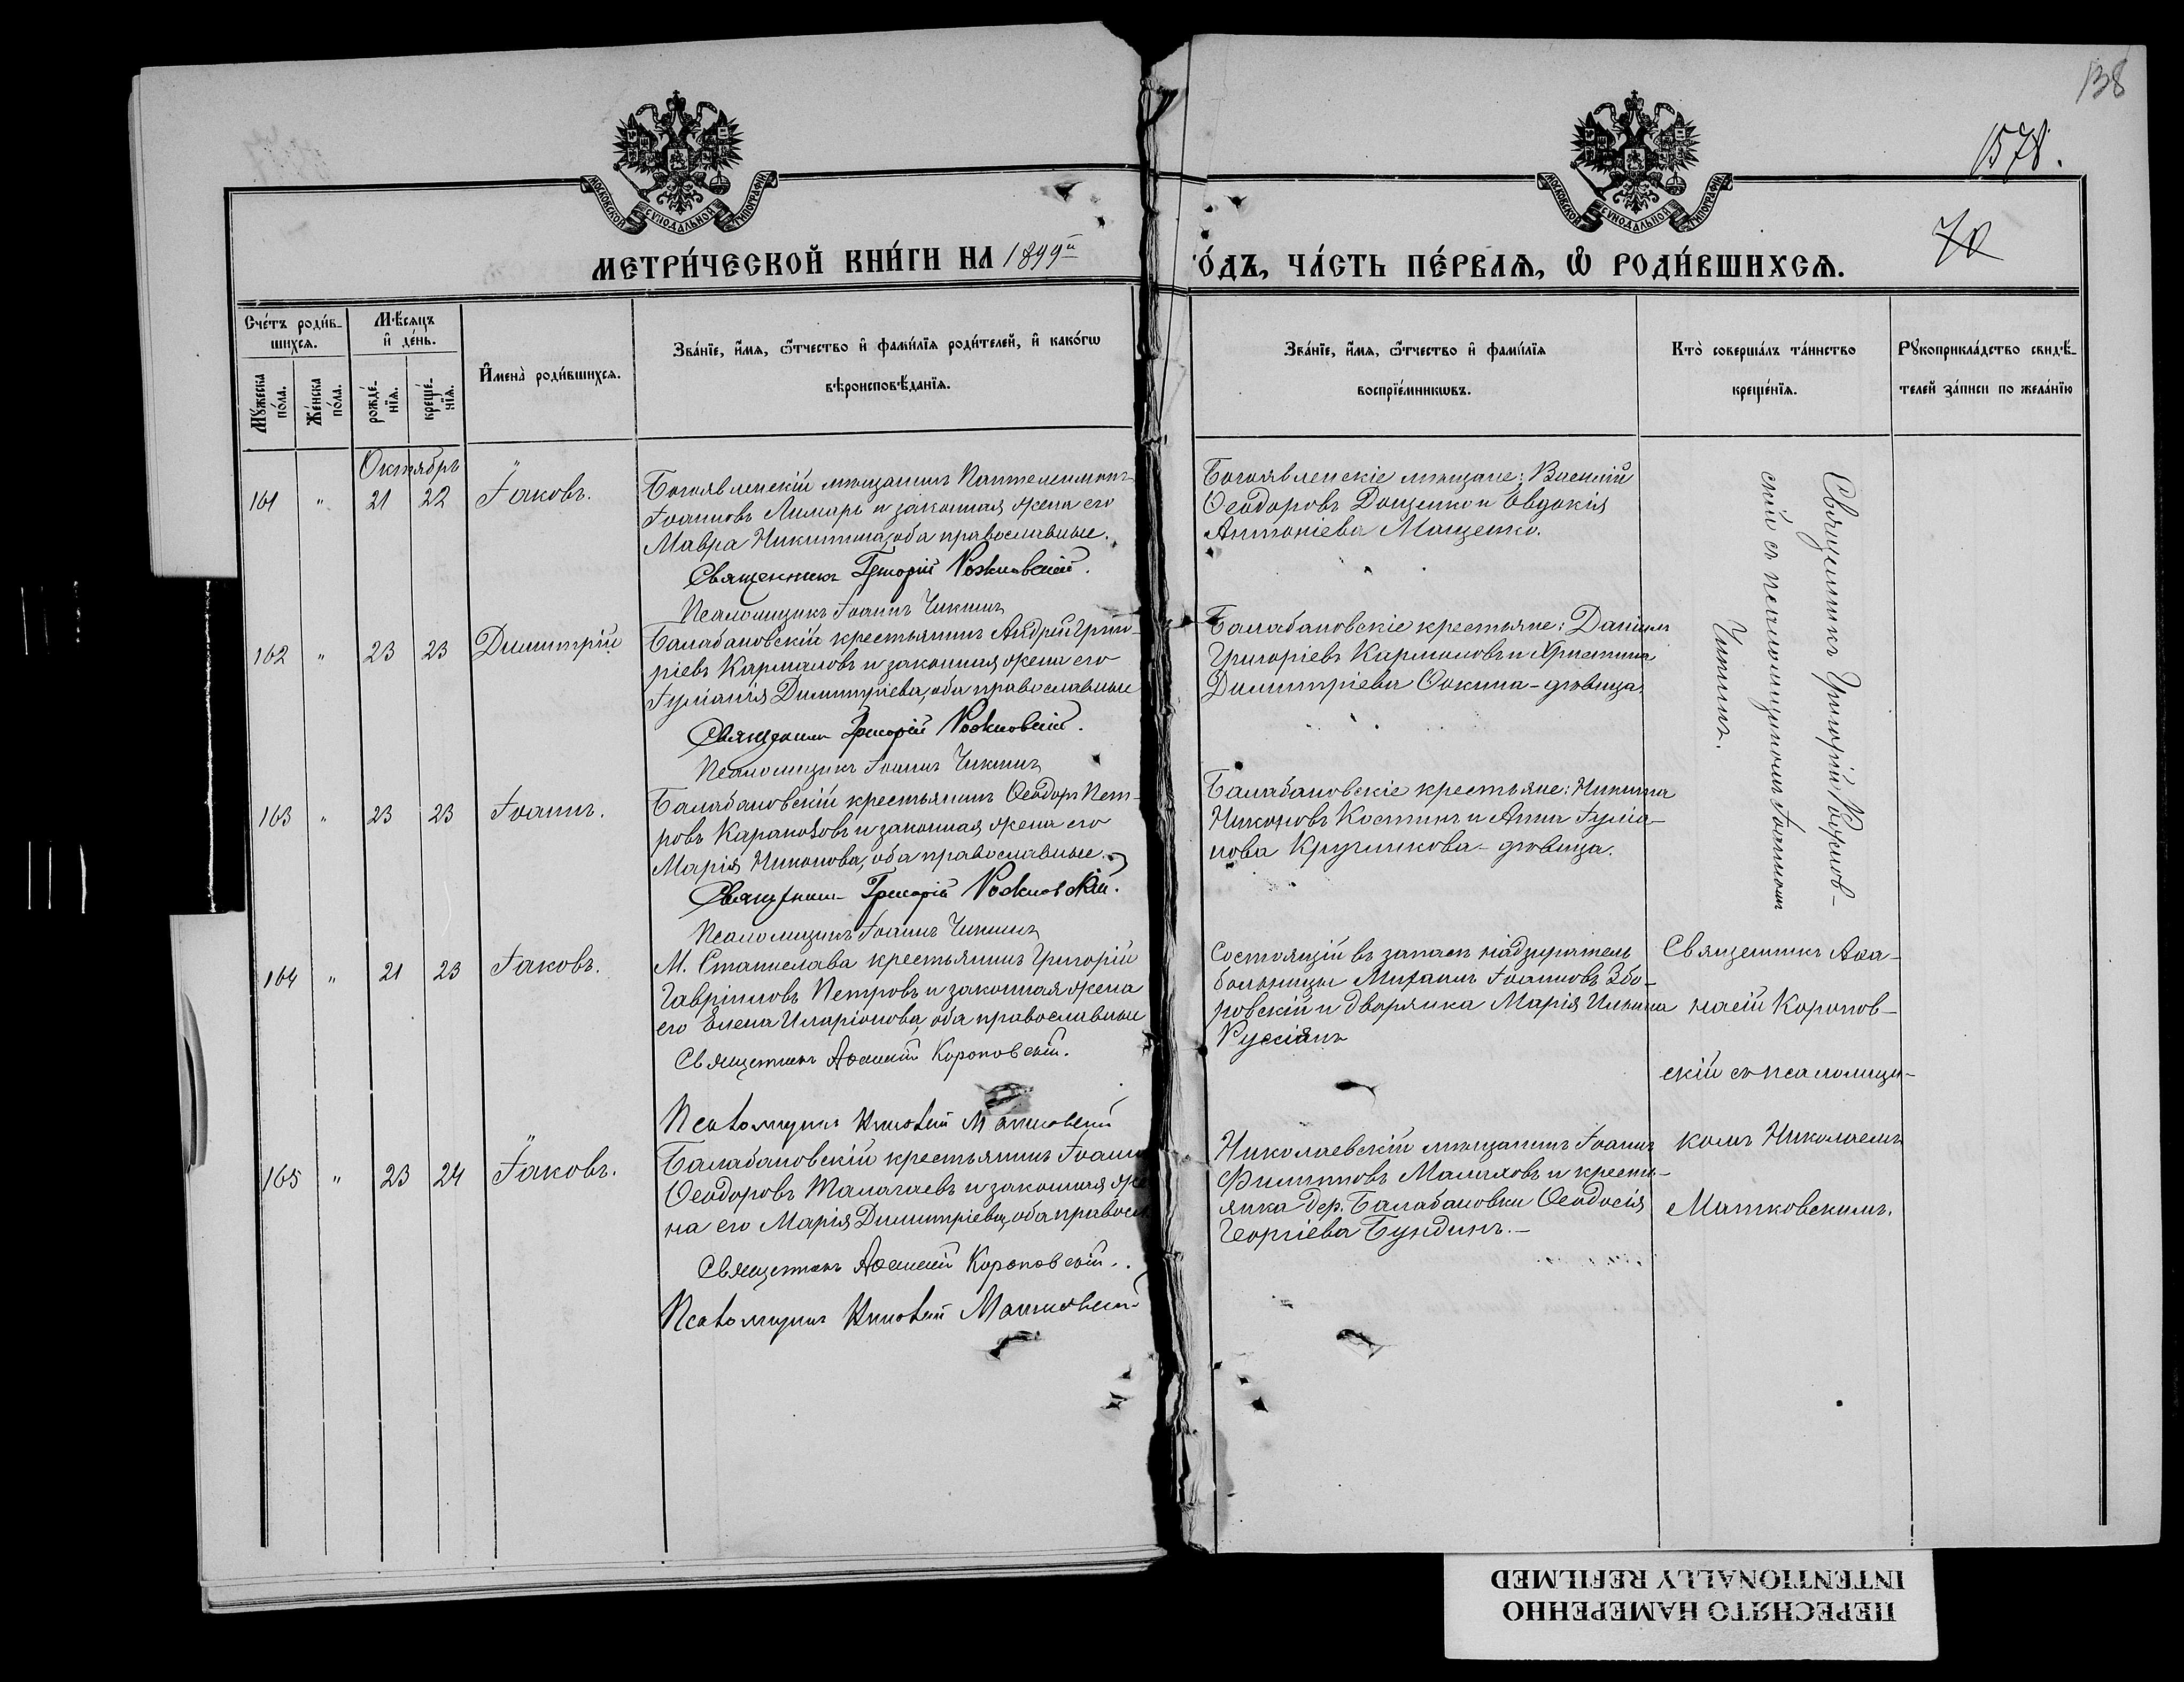 138
1578.
70
МОСКОВСКОЙ СѴНОДАЛЬНОЙ ТИПОГРАФІИ
МОСКОВСКОЙ СѴНОДАЛЬНОЙ ТИПОГРАФІИ
МЕТРИ́ЧЕСКОЙ КНИ́ГИ НА 1899й
О́ДЪ, ЧА́СТЬ ПЕ́РВАѦ, Ѡ҆ РОДИ́ВШИХСѦ.
Сче́тъ роди́в-
шихсѧ.
Мꙋ́жеска по́ла.
Же́нска по́ла.
Мѣ́сѧцъ и҆ де́нь.
рожде́-нїѧ.
креще́-нїѧ.
И҆мена̀ роди́вшихсѧ.
Зва́нїе, и҆́мѧ, ѻ҆́тчество и҆ фами́лїѧ роди́телей, и҆ како́гѡ
вѣроисповѣ́данїѧ.
Зва́нїе, и҆́мѧ, ѻ҆́тчество и҆ фами́лїѧ
воспрїе́мникѡвъ.
Кто̀ соверша́лъ та́инство
креще́нїѧ.
Рꙋкоприкла́дство свидѣ́-
телей за́писи по жела́нїю
Октябрь
161 " 21 22 Іаковъ.
Богоявленскій мѣщанинъ Пантелеимонъ
Іоанновъ Лимарь и законная жена его
Мавра Никитина, оба православные.
Священникъ Григорій Рожковскій.
Псаломщикъ Іоаннъ Чикинъ
Богоявленскіе мѣщане: Василій
Ѳеодоровъ Доценко и Евдокія
Антоніева Маценко.
Священникъ Григорій Рожков-
скій съ псаломщикомъ Іоанномъ
Чикинъ.
162 " 23 23 Димитрій
Балабановскій крестьянинъ Андрей Григо-
ріевъ Кармаловъ и законная жена его
Іуліанія Димитріева, оба православные
Священникъ Григорій Рожковскій.
Псаломщикъ Іоаннъ Чикинъ
Балабановскіе крестьяне: Даніилъ
Григоріевъ Кармаловъ и Христина
Димитріева Ѳокина - дѣвица
163 " 23 23 Іоаннъ.
Балабановскій крестьянинъ Ѳеодоръ Пет-
ровъ Каракозовъ и законная жена его
Марія Никонова, оба православные.
Священникъ Григорій Рожковскій.
Псаломщикъ Іоаннъ Чикинъ
Балабановскіе крестьяне: Никита
Никоновъ Костинъ и Анна Іуліа-
нова Кругликова - дѣвица.
164 " 21 23 Іаковъ.
М. Станислава крестьянинъ Григорій
Гавріиловъ Петровъ и законная жена
его Елена Иларіонова, оба православные
Священникъ Аѳанасій Короповскій.
Псаломщикъ Николай Матковскій
Состоящій въ запасѣ надзиратель
больницы Михаилъ Іоанновъ Збо-
ровскій и дворянка Марія Ильина
Руссіянъ
Священникъ Аѳа-
насій Коропов-
скій съ псаломщи-
комъ Николаемъ
Матковскимъ.
165 " 23 24 Іаковъ.
Балабановскій крестьянинъ Іоаннъ
Ѳеодоровъ Талагаевъ и законная же
на его Марія Димитріева, оба правосл
Священникъ Аѳанасій Короповскій.
Псаломщикъ Николай Матковскій
Николаевскій мѣщанинъ Іоаннъ
Филипповъ Малаховъ и кресть-
янка дер. Балабановки Ѳеодосія
Георгіева Бундинъ.-
ПЕРЕСНЯТО НАМЕРЕННО
INTENTIONALLY REFILMED